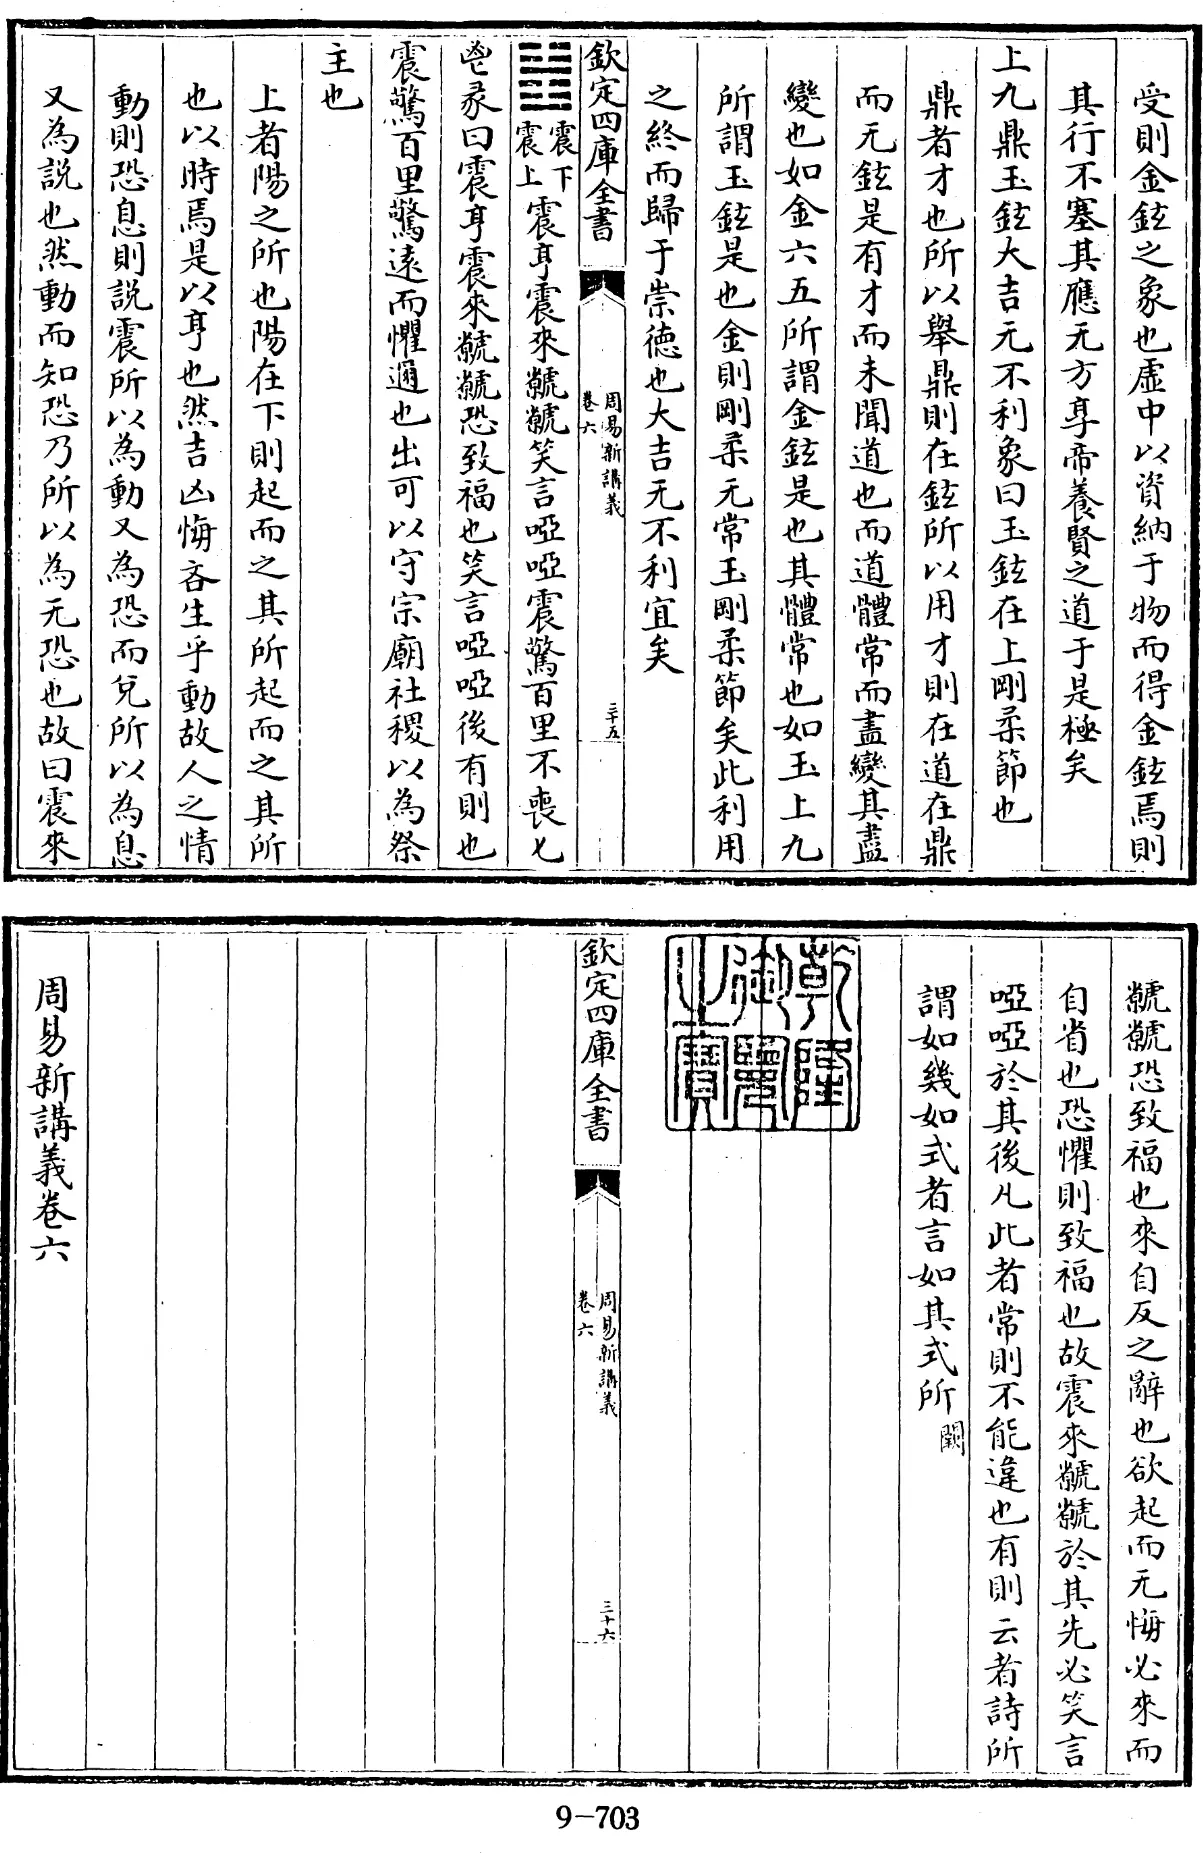 受則金鉉之象也虛中以資納于物而得金鉉焉則
其行不塞其應无方享帝養賢之道于是極矣
上九鼎玉鉉大吉无不利象曰玉鉉在上剛柔節也
鼎者才也所以舉鼎則在鉉所以用才則在道在鼎
而无鉉是有才而未聞道也而道體常而盡變其盡
變也如金六五所謂金鉉是也其體常也如玉上九
所謂玉鉉是也金則剛柔无常玉剛柔節矣此利用
之終而歸于崇德也大吉无不利宜矣
欽定四庫全書
周易新講義
卷六
三十五
䷲震下
震上震亨震來虩虩笑言啞啞震驚百里不喪匕
鬯彖曰震亨震來虩虩恐致福也笑言啞啞後有則也
震驚百里驚遠而懼邇也出可以守宗廟社稷以為祭
主也
上者陽之所也陽在下則起而之其所起而之其所
也以時焉是以亨也然吉凶悔吝生乎動故人之情
動則恐息則説震所以為動又為恐而兌所以為息
又為説也然動而知恐乃所以為无恐也故曰震來
虩虩恐致福也來自反之辭也欲起而无悔必來而
自省也恐懼則致福也故震來虩虩於其先必笑言
啞啞於其後凡此者常則不能違也有則云者詩所
謂如幾如式者言如其式所闕
乾隆
御覽
之寶
欽定四庫全書
周易新講義
卷六
三十六
周易新講義卷六
9-703